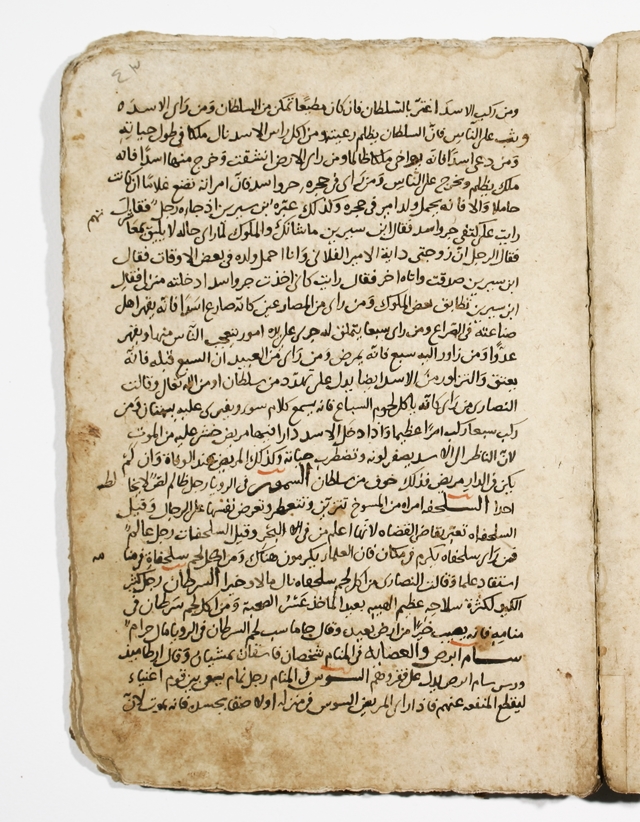 ومن ركب الاسد اغتر بالسلطان فان كان مطيعا تمكن من السلطان ومن راى الاسد
وثب على الناس فان السلطان يظلم رعيته ومن اكل راس الاسد نال ملكا في طول حياته
ومن رعى اسدا فانه يواخي ملكا ظالما ومن راى الارض انشقت وخرج منها اسدا فانه
ملك يظلم ويخرج على الناس ومن راى في حجره جرو اسد فان امراته تضع غلاما ان كانت
حاملا والا فانه يحمل ولد امير في حجره ولذلك عبره ابن سيرين اذ جاءه رجل فقال
رايت على كتفي جرو اسد فقال ابن سيرين ما شانك والملوك لما راى حاله لا يليق
فقال الرجل ان زوجتي داية الامير الفلاني وانا احمل ولده في بعض الاوقات فقال
ابن سيرين صدقت واتاه اخر فقال رايت كاني اخذت جرو اسد ادخلته منزلي فقال
ابن سيرين تطابق بعض الملوك ومن راى من المصارعين كانه صارع اسدا فانه يقهر اهل
صناعته في الصراع ومن راى سبعا يتملق له جرى على يده امور تنجي الناس منها ويقهر
عدوا ومن زاور اليه سبع فانه يمرض ومن راى من العبيد ان السبع قتله فانه
يعتق والتزاور من الاسد ايضا يدل على تهدد من سلطان او من الله تعالى وقالت
النصارى من راى كانه ياكل لحوم السباع فانه يسمع كلام سوء ويفترى عليه ومن
ركب سبعا ركب امرا عظيما واذا دخل الاسد دارا فيها مريض خشي عليه من الموت
لان الناظر الى الاسد يصفر لونه وتضطرب حياته وكذلك المريض عند الوفاة وان لم
يكن في الدار مريض فذلك خوف من سلطان السمور في الرويا رجل ظالم لص لا يخالط
احدا السلحفاه امراه من المسوخ تتزين وتتعطر وتعرض نفسها على الرجال وقيل
السلحفاه تعبر بقاضي القضاه لانها اعلم من في البحر وقيل السلحفاه رجل عالم
فمن راى سلحفاه تكرم في مكان فان العلماء يكرمون هناك ومن اكل لحم سلحفاة في منامه
استفاد علما وقالت النصارى من اكل لحم سلحفاه نال مالا وخيرا السرطان رجل كثير
الكيد لكثرة سلاحه عظيم الهيبة بعيد الماخذ عسر الصحبة ومن اكل لحم سرطان في
منامه فانه يصيب خيرا من ارض بعيد وقال جاماسب لحم السرطان في الرويا مال حرام
سام ابرص والعضايه في المنام شخصان فاسقان يمشيان وقال ارطاميد
ورس سام ابرص يدل على فقر وهم السوس في المنام رجل نمام يسعى بين قوم اغنياء
ليقطع المنفعه عنهم فاذا راى المريض السوس في منزله فانه يموت لان